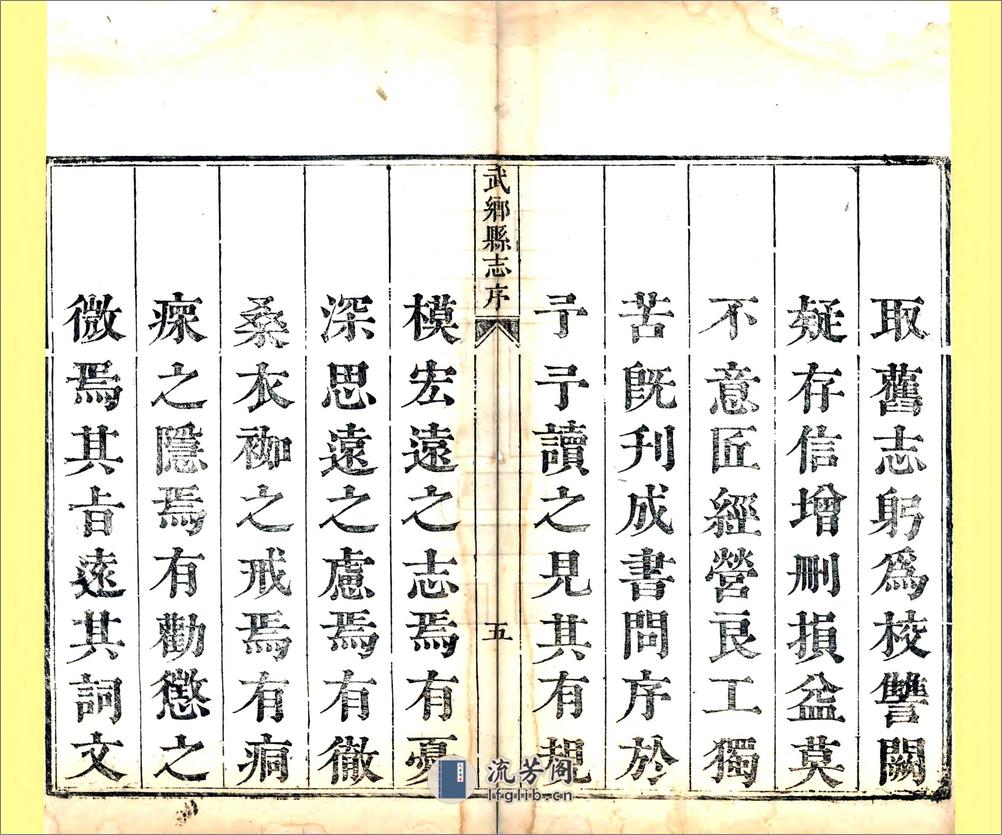 取舊志躬爲校讐闕
疑存信增刪損益莫
不意匠經營良工獨
苦旣刋成書問序於
予予讀之見其有規
武鄉縣志序
五
模宏遠之志焉有憂
深思遠之慮焉有徹
桑衣袽之戒焉有痌
瘝之隱焉有勸懲之
微焉其旨遠其詞文
流芳阁
lfglib.cn